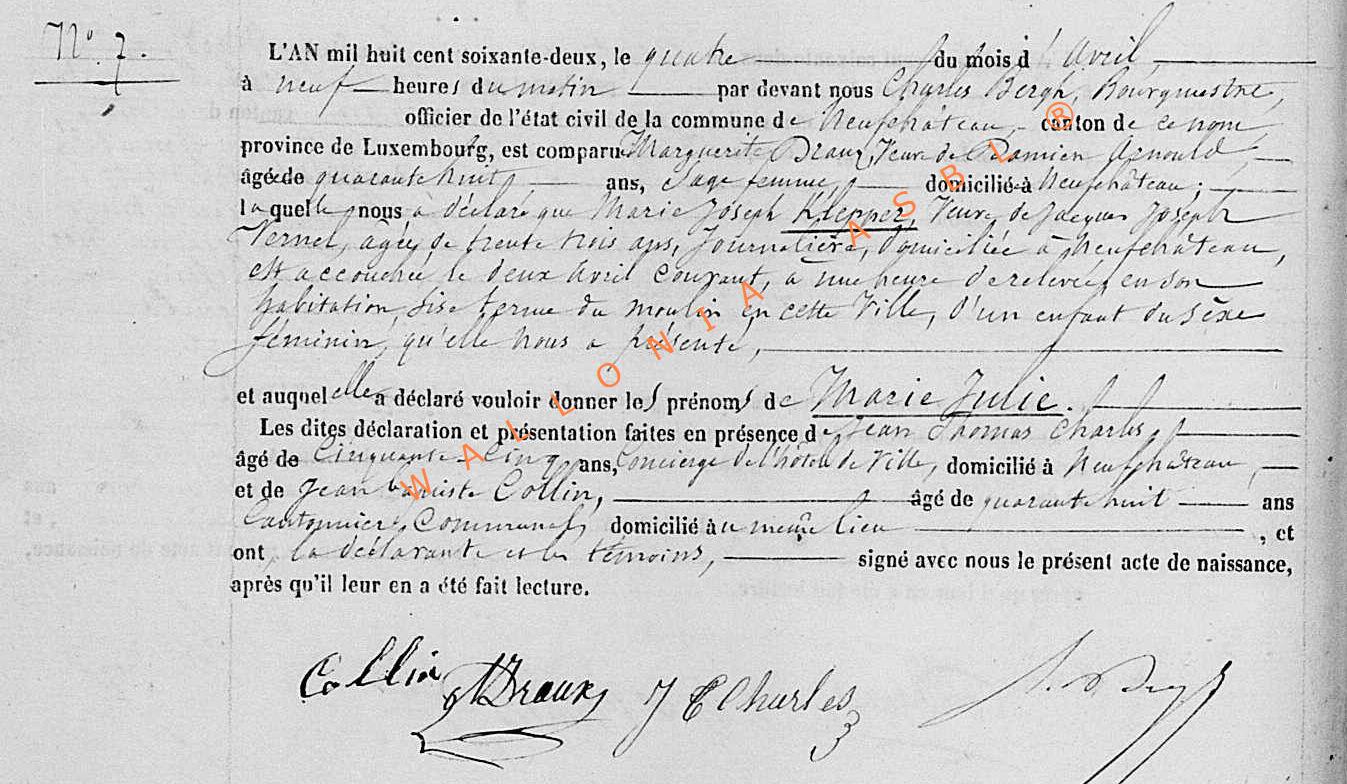 N° 7.
L'AN mil huit cent soixante-deux, le quatre du mois d'Avril,
à neuf heures du matin par devant nous Charles Bergh, Bourgmestre,
officier de l'état civil de la commune de Neufchâteau, canton de ce nom,
province de Luxembourg, est comparue Marguerite Draux, Veuve de Damien Arnould,
âgée de quarante huit ans, Sage femme, domiciliée à Neufchâteau;
laquelle nous a déclaré que Marie Joseph Klepper, Veuve de Jacques Joseph
Vernel, âgée de trente trois ans, Journalière, domiciliée à Neufchâteau,
est accouchée le deux Avril courant, à une heure de relevée, en son
habitation, sise terme du moulin en cette Ville, d'un enfant du sèxe
féminin, qu'elle nous a présenté,
et auquel elle a déclaré vouloir donner les prénoms de Marie Julie.
Les dites déclaration et présentation faites en présence de Jean Thomas Charles,
âgé de Cinquante-Cinq ans, Concierge de l'hôtel de Ville, domicilié à Neufchâteau,
et de Jean baptiste Collin, âgé de quarante huit ans
Cantonnier Communal, domicilié au même lieu, et
ont, la déclarante et les témoins, signé avec nous le présent acte de naissance,
après qu'il leur en a été fait lecture.
Collin MDraux J T Charles
WALLONIA ASBL ®